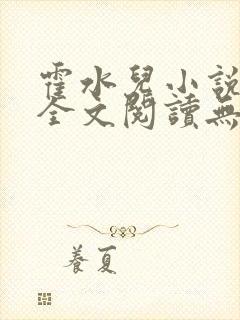 霍水兒小說
全文閱讀無
養夏